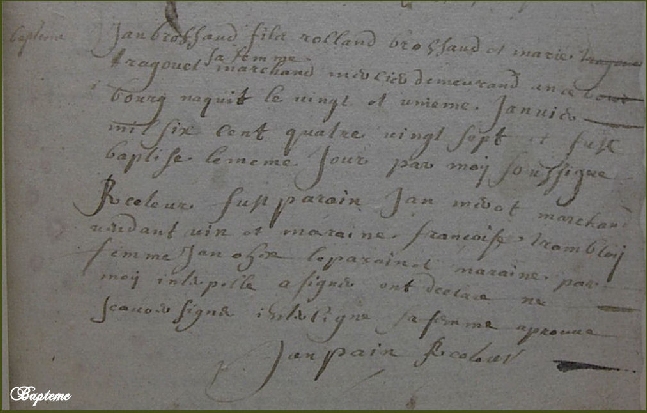 baptême
Jan brossaud fils rolland brossaud et marie
sa femme
tragouet marchand demeurand en ce
bourg naquit le vingt et unieme Janvier
mil six cent quatre vingt sept et fust
baptise le meme Jour par moy soussigne
Recteur fust parain Jan marchand
vendant vin et maraine francoise
femme Jan le parain et maraine par
moy interpelle a signer ont declare ne
scavoir signer interligne sa femme aprouve
Jan pain Recteur
Bapteme